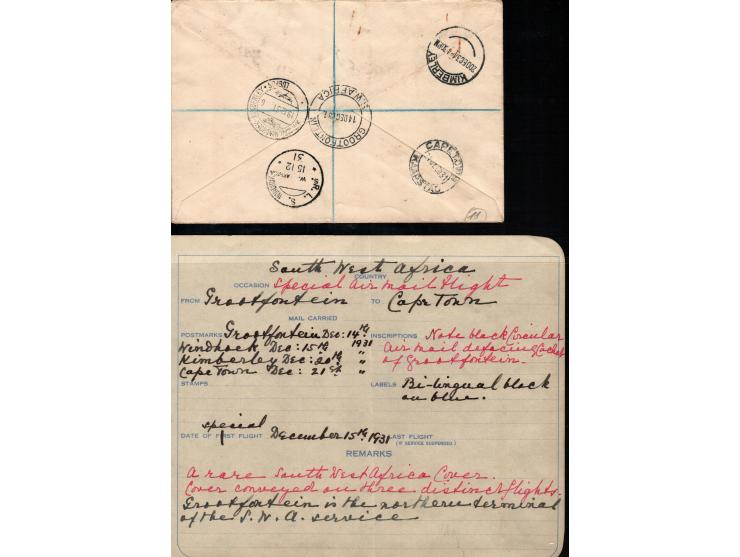 KIMBERLEY
GROOTFONTEIN
14 DEC
S.W. AFRICA
CAPE TOWN
R.L.S. WINDHOEK
15 12
W. AFRICA
31
11
South West Africa
COUNTRY
OCCASION Special Air mail Flight
FROM Grootfontein TO Cape Town
MAIL CARRIED
POSTMARKS Grootfontein Dec: 14th 1931 INSCRIPTIONS Note black Circular
Windhoek Dec: 15th " Air mail defacing Cachet
Kimberley Dec: 20th " of Grootfontein.
Cape Town Dec: 21st "
STAMPS LABELS Bi-lingual black
on blue.
special
DATE OF FIRST FLIGHT December 15th 1931 LAST FLIGHT
(IF SERVICE SUSPENDED)
REMARKS
A rare South West Africa Cover.
Cover conveyed on three distinct flights.
Grootfontein is the northern terminal
of the S.W.A. service